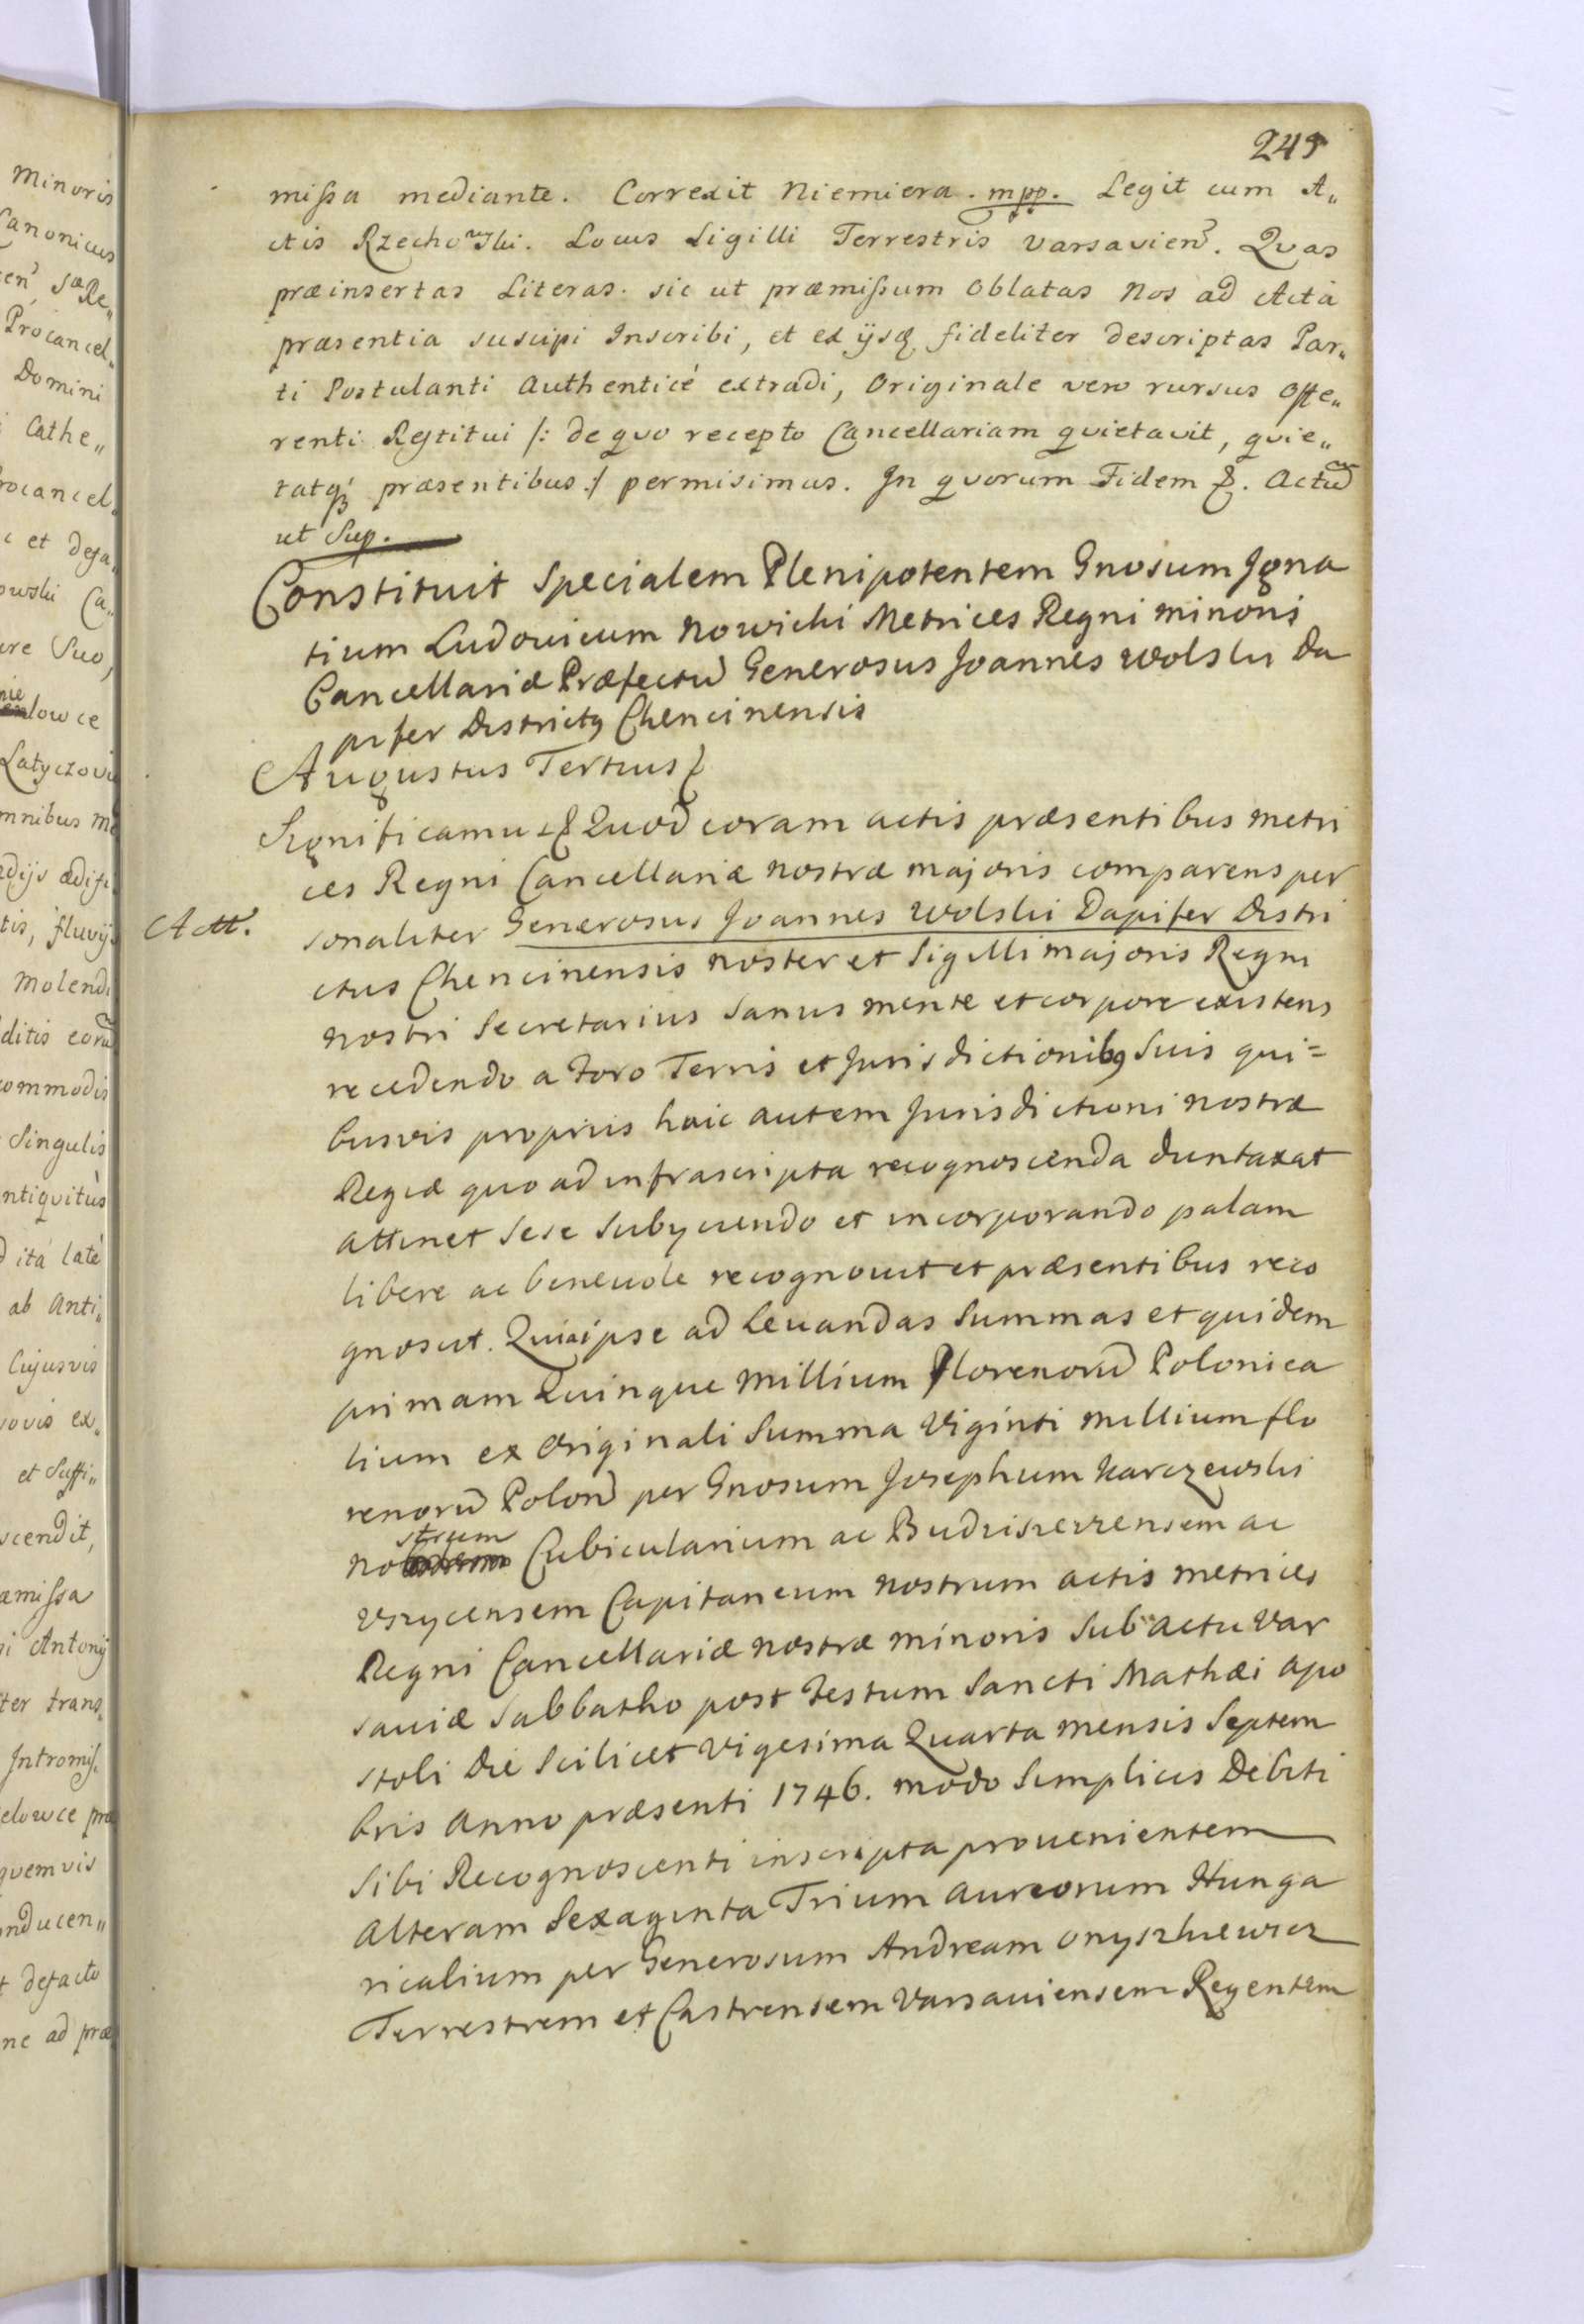 249
missa mediante. Correxit Niemiera. mpp. Legit cum A„
ctis Rzechowski. Locus Sigilli Terrestris Varsavien̄. Quas
præinsertas Literas sic ut præmissum Oblatas Nos ad Acta
præsentia suscipi Inscribi, et ex ijsq fideliter descriptas Par„
ti Postulanti Authenticé extradi, Originale vero rursus Offe„
renti Restitui /: de quo recepto Cancellariam quietavit, quie„
tatq præsentibus :/ permisimus. In quorum Fidem &. Actū
ut Sup.
Constituit Specialem Plenipotentem Gnosum Igna
tium Ludovicum Nowicki Metrices Regni minoris
Cancellariæ Præfectū Generosus Joannes Wolski Da
pifer Districtq Chencinensis
Augustus Tertius &
Significamus & Quod coram actis præsentibus metri
ces Regni Cancellariæ nostræ majoris comparens per
Actt.
sonaliter Generosus Joannes Wolski Dapifer Distri
ctus Chencinensis noster et Sigilli majoris Regni
nostri Secretarius Sanus mente et corpore existens
recedendo a Foro Terris et Jurisdictionibq Suis qui=
busvis propriis huic autem Jurisdictioni nostræ
Regiæ quo ad infrascripta recognoscenda duntaxat
attinet sese subyciendo et incorporando palam
libere ac benevole recognovit et præsentibus reco
gnoscit. Quia ipse ad Levandas Summas et quidem
primam Quinque Millium Florenorū Polonica
lium ex Originali Summa Viginti Millium flo
renorū Polon̄ per Gnosum Josephum Karczewski
strum
No Cubicularium ac Budziszezensem ac
Uszycensem Capitaneum nostrum actis metrices
Regni Cancellariæ nostræ minoris sub actu Var
saviæ Sabbatho post Festum Sancti Mathæi Apo
stoli Die Scilicet Vigesima Quarta mensis Septem
bris Anno præsenti 1746. modo Simplicis Debiti
Sibi Recognoscenti inscripta provenientem
Alteram Sexaginta Trium Aureorum Hunga
ricalium per Generosum Andream Onyszkiewicz
Terrestrem et Castrensem Varsaviensem Regentem